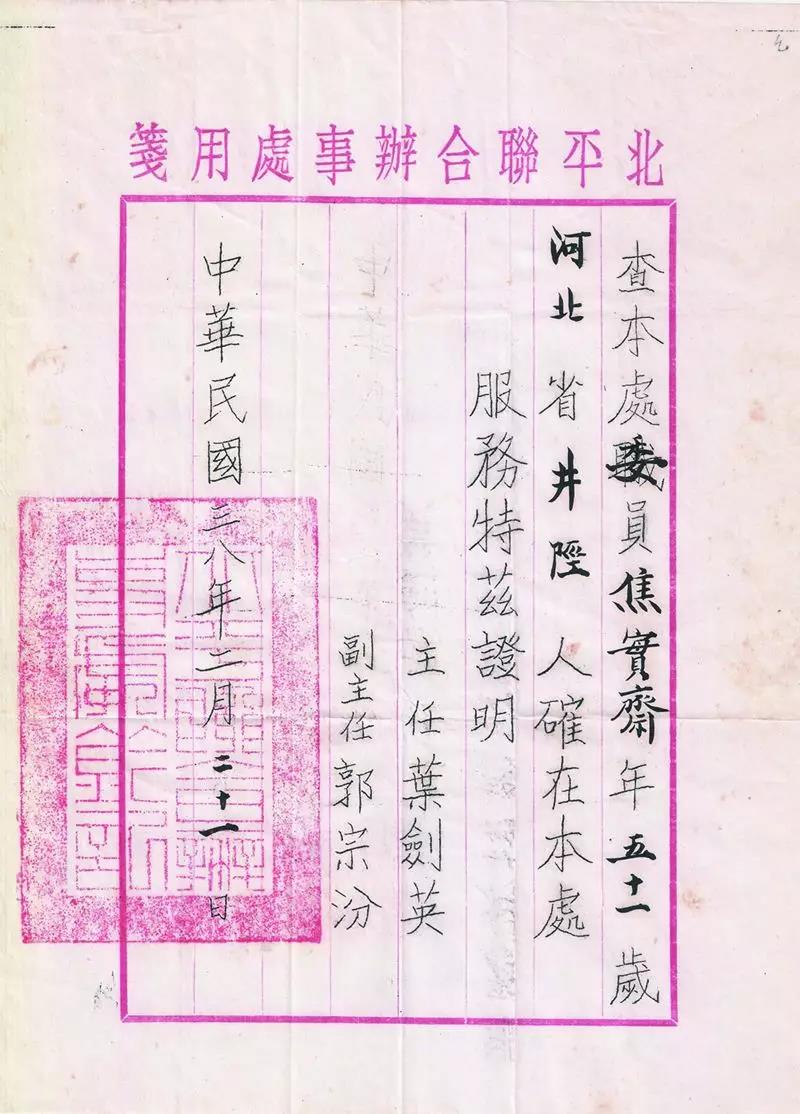 北平聯合辦事處用箋
查本處委員焦實齋年五十一歲
河北省井陘人確在本處
服務特茲證明
主任葉劍英
副主任郭宗汾
中華民國三八年二月二十一日